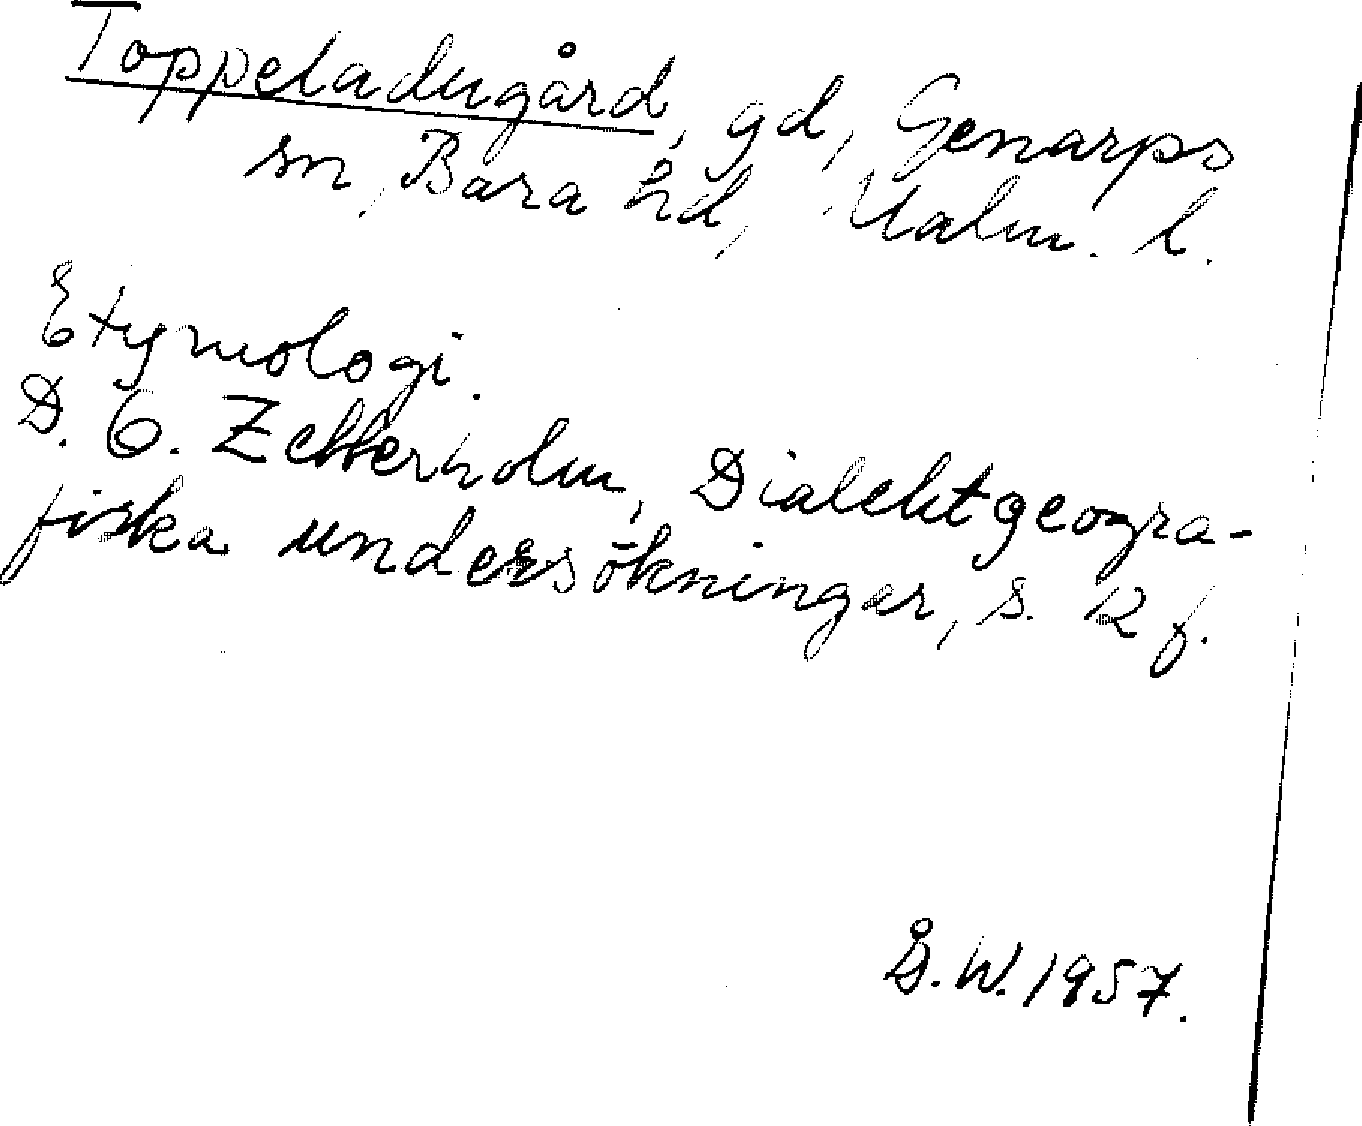 Toppeladugård, gd, Genarps
sn, Bara hd, Malm. l.
Etymologi.
D. O. Zetterholm, Dialektgeogra-
fiska undersökningar, s. 12 f.
G. W. 1957.